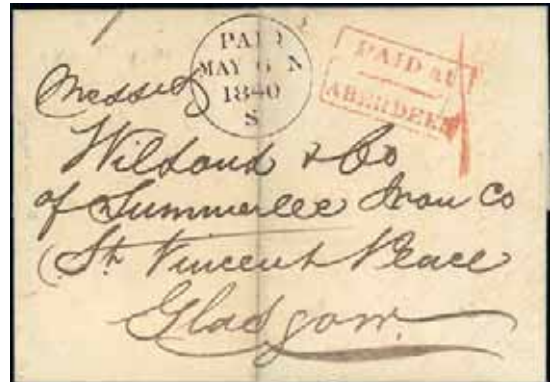 PAID
MAY 6 N
1840
S
PAID at
ABERDEEN
Messrs
Wilsons & Co
of Summerlee Iron Co
St Vincent Place
Glasgow